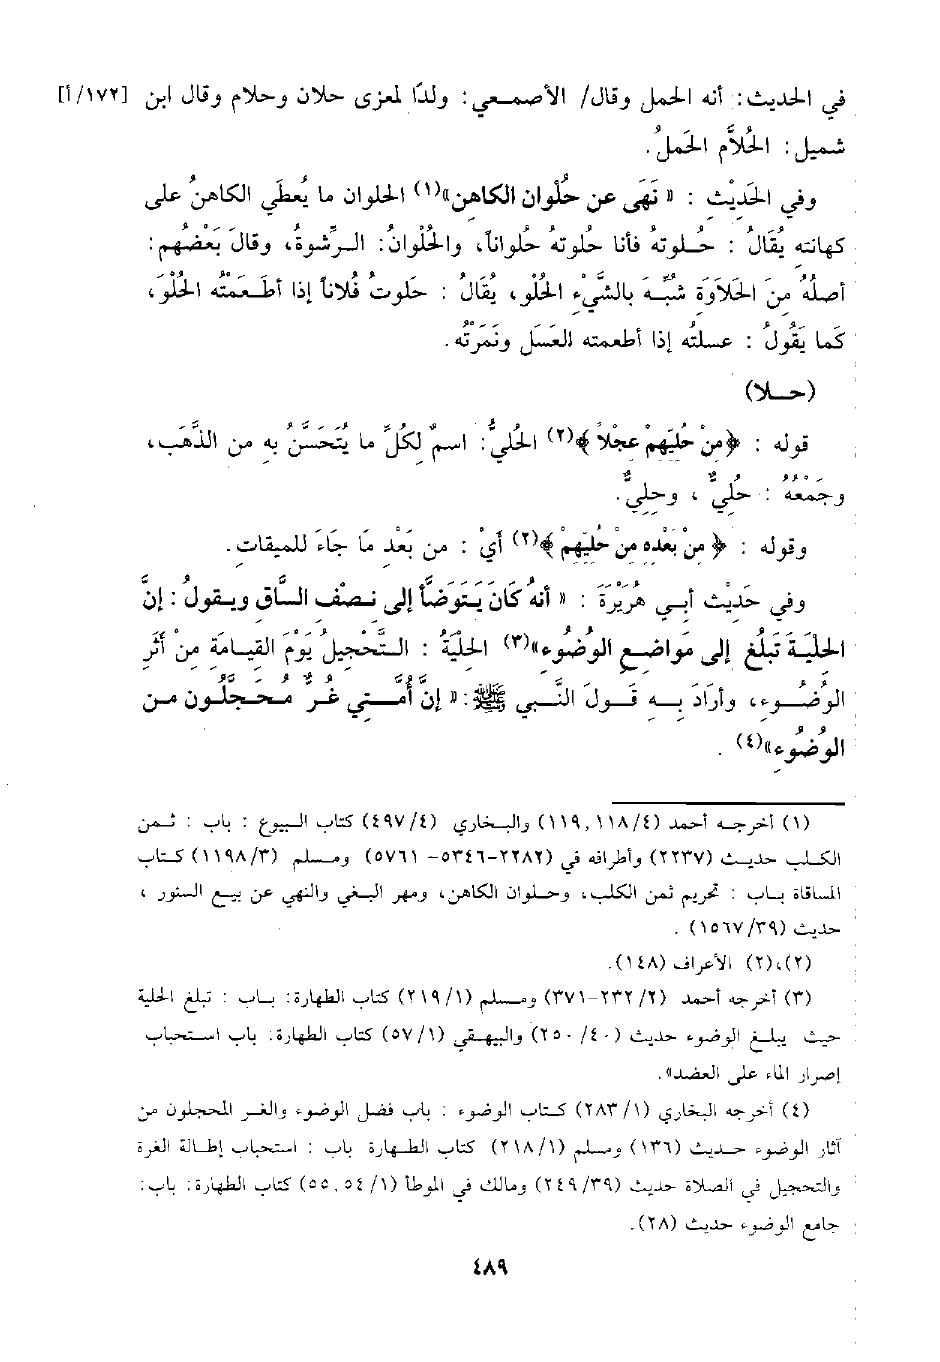 في الحديث: أنه الحمل وقال/ الأصمعي: ولدًا لمعزى حلان وحلام وقال ابن [١٧٢/أ]
شميل: الحُلاَّم الحَملُ.
وفي الحَدِيْثِ : « نَهَى عن حُلْوان الكاهن»(١) الحلوان ما يُعطَي الكاهنُ على
كهانته يُقَالُ : حُلوتهُ فأنا حلوتهُ حلواناً، والحُلْوانُ: الرِّشوةُ، وقالَ بَعْضُهم:
أصلهُ مِنَ الحَلاَوَةِ شُبِّهَ بالشَّيْءِ الحُلو، يُقَالُ : حَلوتُ فُلاناً إذا أطَعَمْتُه الحُلْوَ،
كَما يَقُولُ : عسلتُه إذا أطعمته العَسَل وتَمَرْتُه.
(حلا)
قوله : ﴿مِنْ حُلِيِّهِمْ عِجْلاً﴾(٢) الحُليُّ: اسمٌ لِكُلِّ ما يُتَحَسَّنُ به من الذَّهَب،
وجَمْعُهُ : حُلِيٌّ ، وحِلِيٌّ.
وقوله : ﴿مِنْ بَعْدِهِ مِنْ حُلِيِّهِمْ﴾(٢) أيْ : من بَعْدِ مَا جَاءَ للميقاتِ.
وفي حَدِيْثِ أبي هُرَيْرَةَ : « أنهُ كَانَ يَتَوَضَّأ إلى نصْف السَّاق ويقولُ : إنَّ
الحلْيَةَ تَبلُغ إلى مَواضع الوُضُوء»(٣) الحلْيَةُ : التَّحْجيلُ يَوْمَ القيامَةِ مِنْ أثَرِ
الوُضُوءِ، وأرَادَ بِهِ قَولَ النَّبي ﷺ: « إنَّ أُمَّتي غُرٌّ مُحَجَّلُون من
الوُضُوءِ»(٤) .
(١) أخرجه أحمد (١١٩,١١٨/٤) والبخاري (٤٩٧/٤) كتاب البيوع : باب : ثمن
الكلب حديث (٢٢٣٧) وأطرافه في (٢٢٨٢-٥٣٤٦- ٥٧٦١) ومسلم (١١٩٨/٣) كتاب
المساقاة باب : تحريم ثمن الكلب، وحلوان الكاهن، ومهر البغي والنهي عن بيع السنور ،
حديث (١٥٦٧/٣٩) .
(٢)،(٢) الأعراف (١٤٨).
(٣) أخرجه أحمد (٢٣٢/٢-٣٧١) ومسلم (٢١٩/١) كتاب الطهارة: باب : تبلغ الحلية
حيث يبلغ الوضوء حديث (٢٥٠/٤٠) والبيهقي (٥٧/١) كتاب الطهارة: باب استحباب
إصرار الماء على العضد».
(٤) أخرجه البخاري (٢٨٣/١) كتاب الوضوء : باب فضل الوضوء والغر المحجلون من
آثار الوضوء حديث (١٣٦) ومسلم (٢١٨/١) كتاب الطهارة باب : استحباب إطالة الغرة
والتحجيل في الصلاة حديث (٢٤٩/٣٩) ومالك في الموطأ (٥٥,٥٤/١) كتاب الطهارة: باب:
جامع الوضوء حديث (٢٨).
٤٨٩